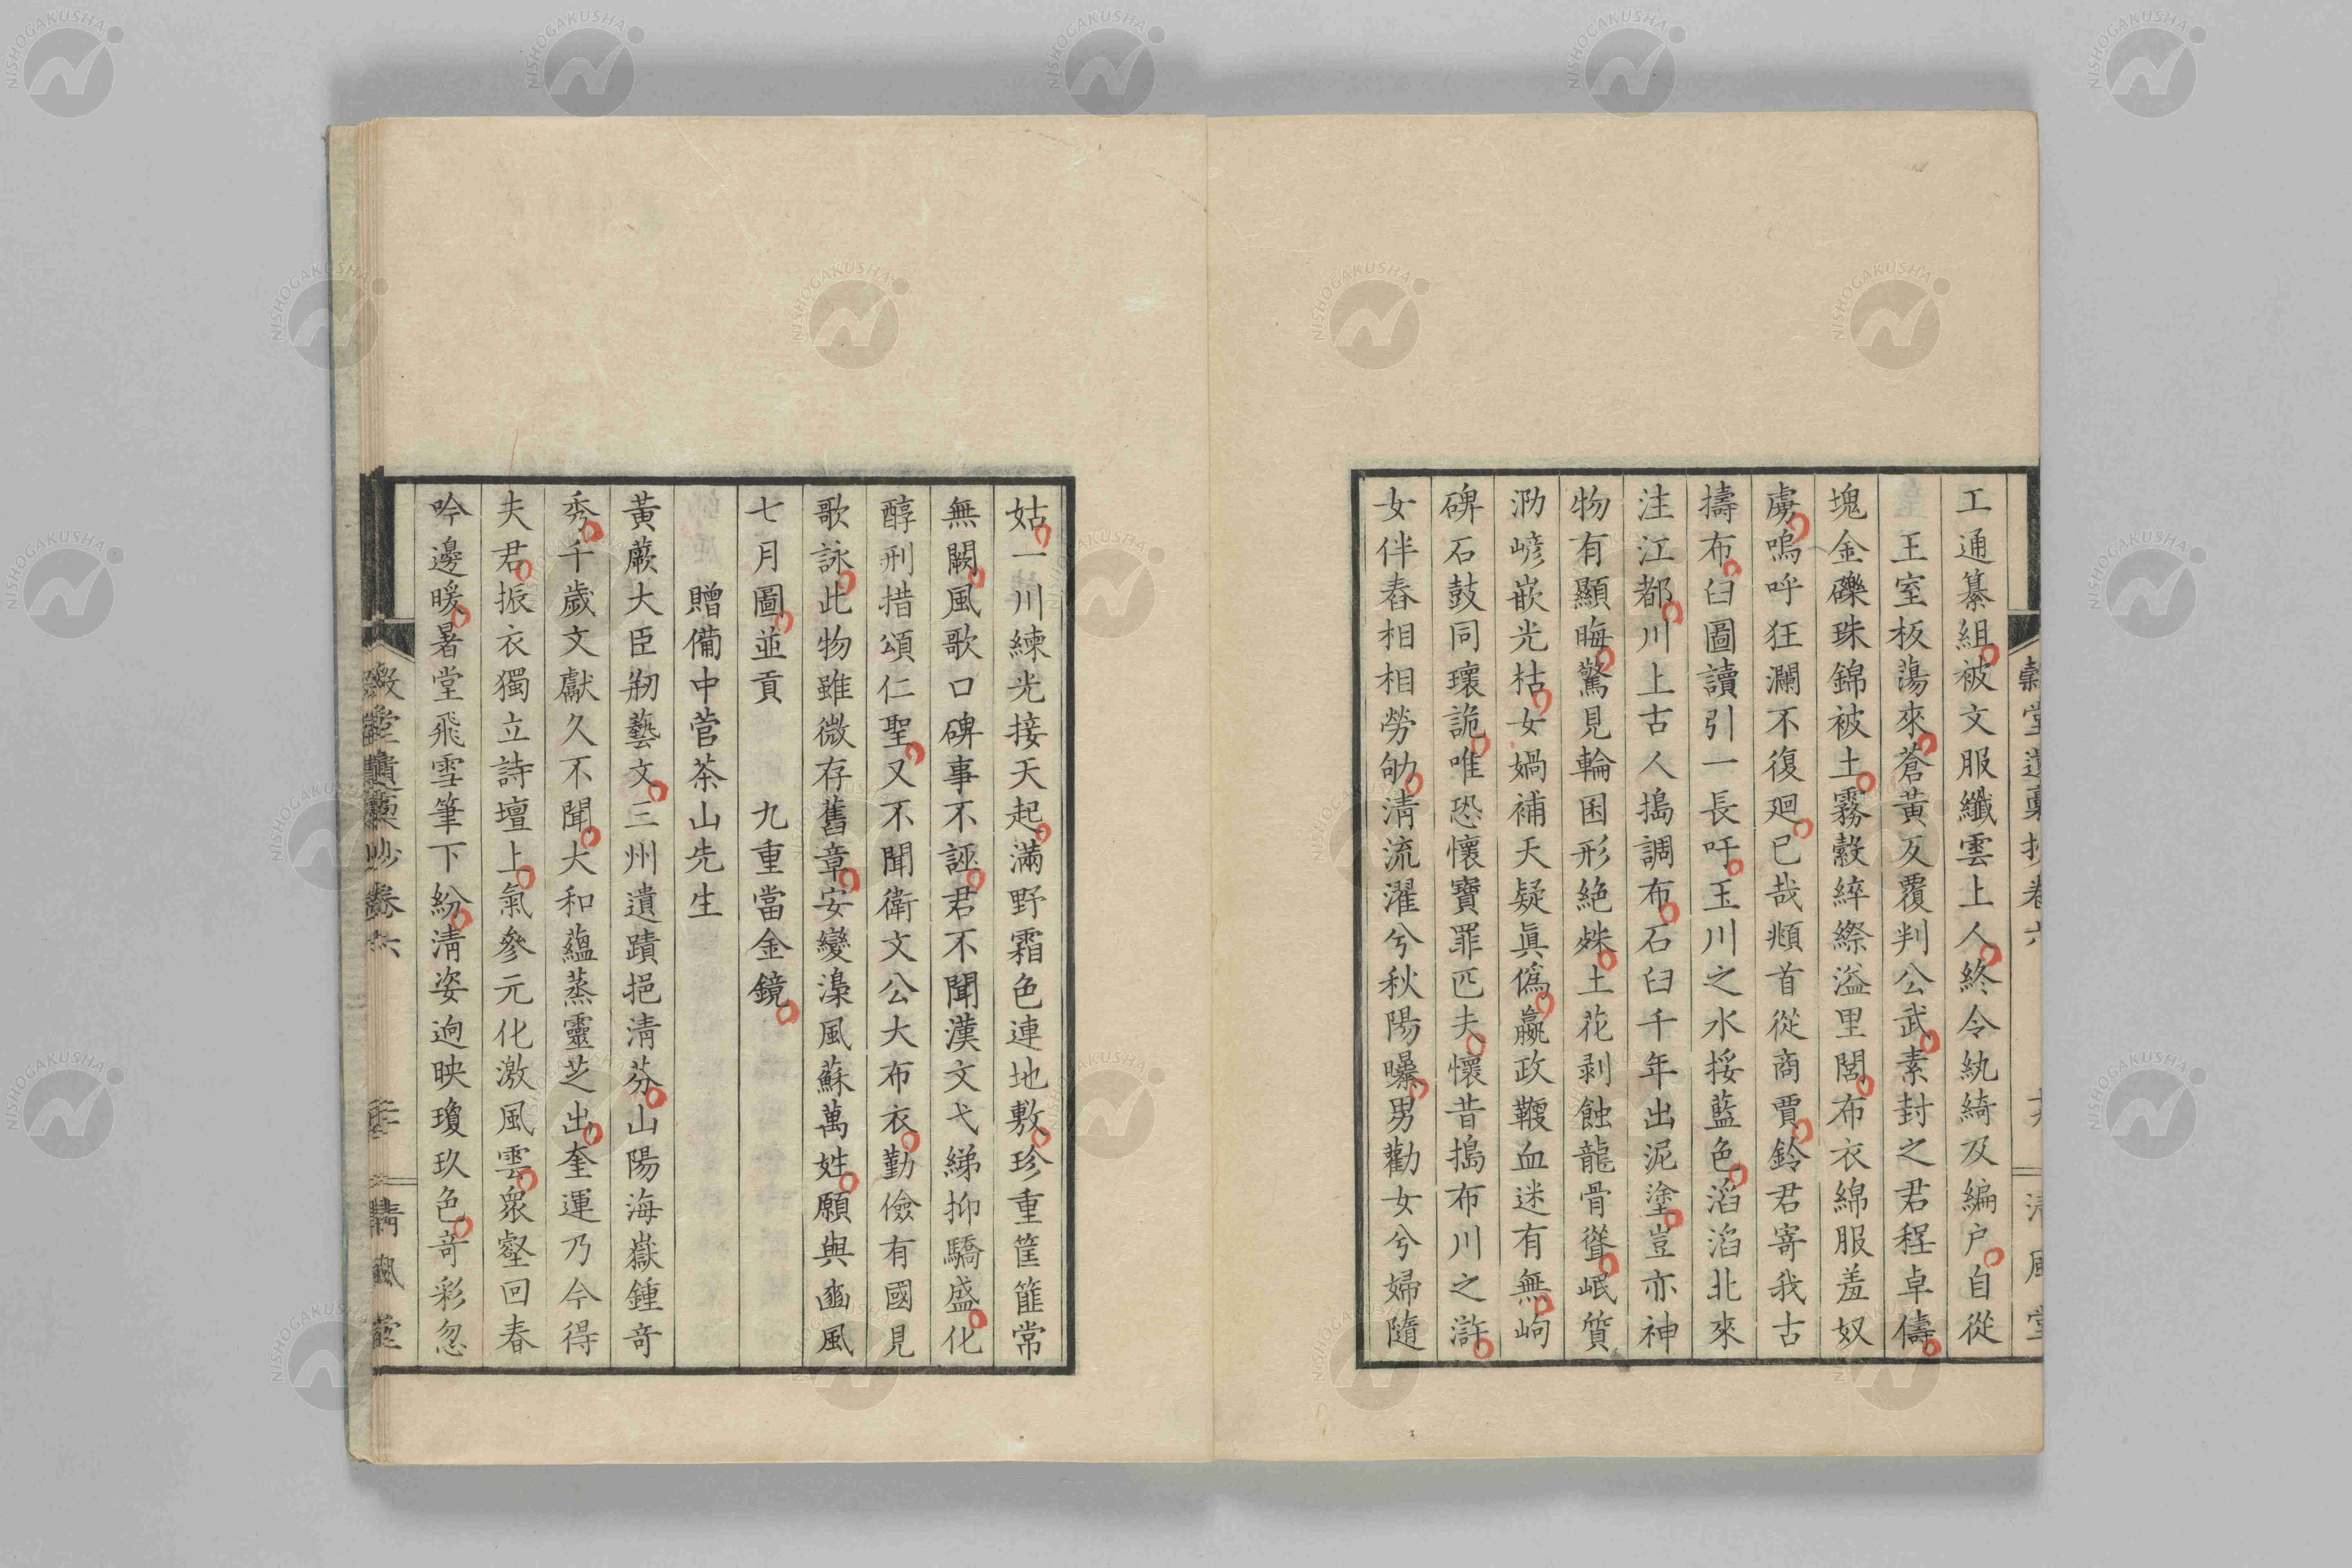 工通纂組被文服纖雲上人終令紈綺及編户自從
王室板蕩來蒼黃反覆判公武素封之君程卓儔
塊金礫珠錦被土霧縠綷縩溢里閭布衣綿服羞奴
虜嗚呼狂瀾不復廻已哉頫首從商賈鈴君寄我古
擣布臼圖讀引一長吁玉川之水挼藍色滔滔北來
注江都川上古人搗調布石臼千年出泥塗豈亦神
物有顯晦驚見輪囷形絶姝土花剥蝕龍骨聳岷質
泐嵃嵌光枯女媧補天疑眞僞嬴政鞭血迷有無岣
碑石鼓同瓌詭唯恐懷寶罪匹夫懷昔搗布川之滸
女伴舂相相勞劬淸流濯兮秋陽曝男勸女兮婦隨
姑一川練光接天起滿野霜色連地敷珍重筐篚常
無闕風歌口碑事不誣君不聞漢文弋綈抑驕盛化
醇刑措頌仁聖又不聞衛文公大布衣勤儉有國見
歌詠此物雖微存舊章安變澡風蘇萬姓願與豳風
七月圖並貢　九重當金鏡
贈備中菅茶山先生
黃蕨大臣剏藝文三州遺蹟挹淸芬山陽海嶽鍾奇
秀千歲文獻久不聞大和蘊蒸靈芝出奎運乃今得
夫君振衣獨立詩壇上氣參元化激風雲衆壑回春
吟邊暖暑堂飛雪筆下紛淸姿逈映瓊玖色奇彩忽